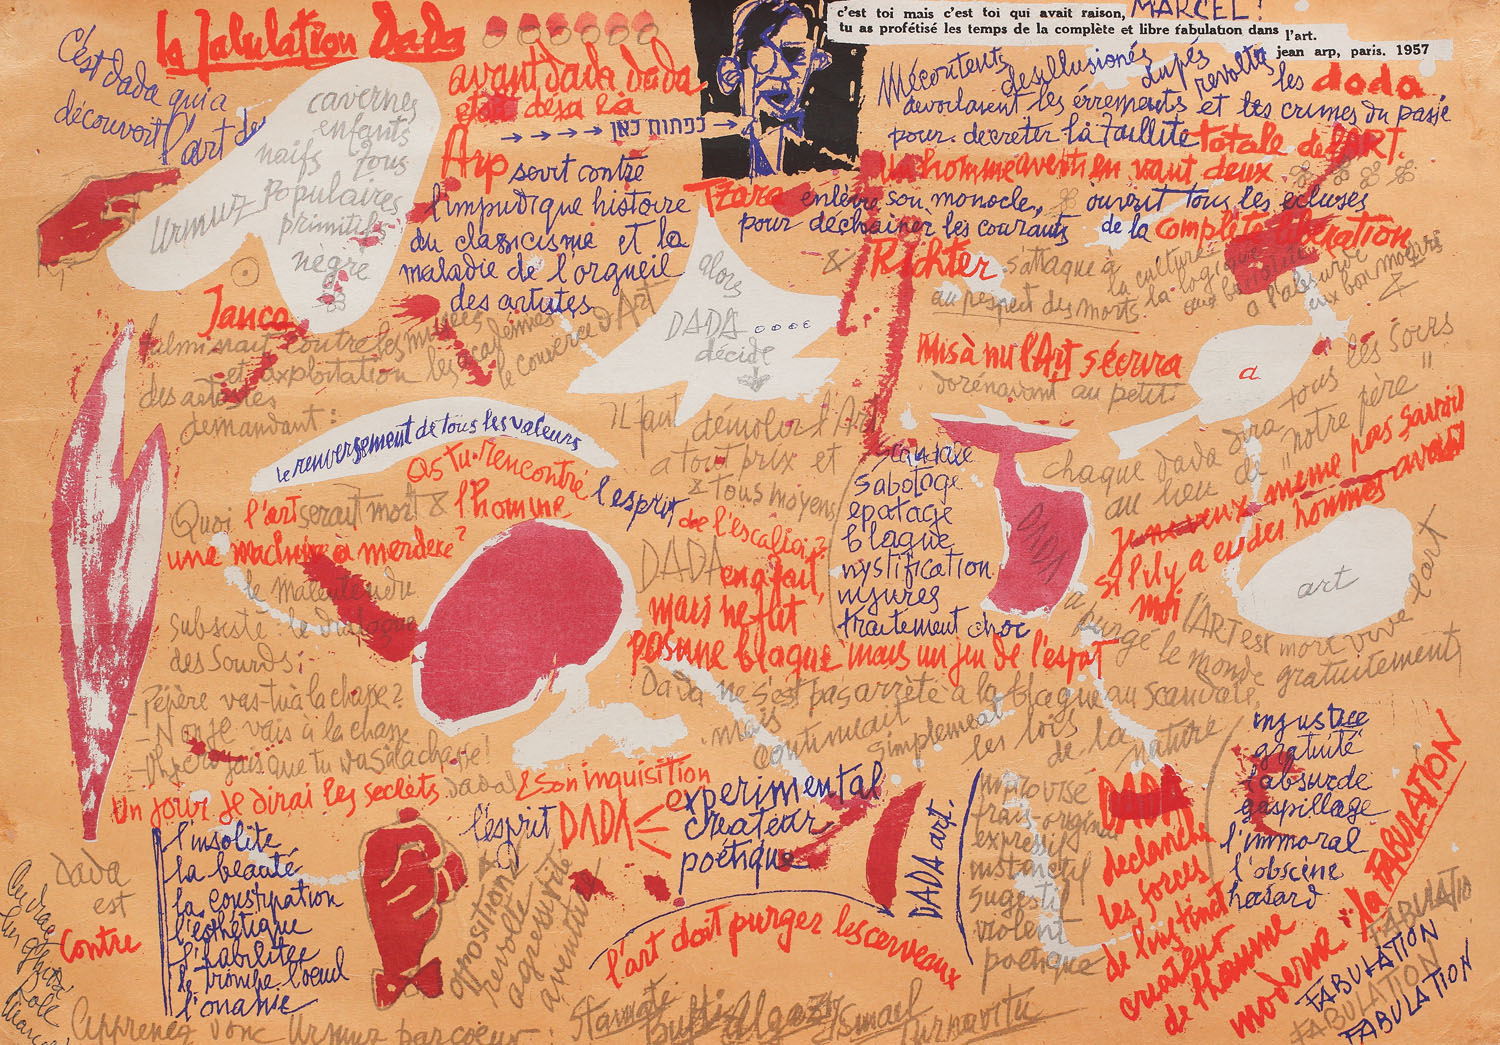 la fabulation Dada
C'est dada qui a
découvert l'art des
cavernes
enfants
naifs fous
Populaires
Urmuz
primitifs
nègre
avant dada dada
était déjà là
לפתוח כאן
MARCEL!
c'est toi mais c'est toi qui avait raison,
tu as profétisé les temps de la complète et libre fabulation dans l'art.
jean arp, paris. 1957
Mécontents desillusionés dupés revoltés les dada
devoilaient les érrements et les crimes du passé
pour décréter la faillite totale de l'ART.
Un homme averti en vaut deux
Arp sort contre
l'impudique histoire
du classicisme et la
maladie de l'orgueil
des artistes
Tzara enlève son monocle, & ouvrit tous les écluses
pour déchaîner les courants de la complète libération
& Richter s'attaque à la culture
au respect des morts. la logique
a l'absurde
aux bon moeurs
&
Janco
fulminait contre les musées
et exploitation les académies
le couverce d'Art
des artistes
demandant:
le renversement de tous les valeurs
alors
DADA....
décide
Il faut démolir l'Art
a tout prix et
& tous moyens
Mis à nu l'Art s'écria
dorénavant au petit
a
tous les soirs
chaque dada dira
au lieu de "notre père"
je ne veux meme pas savoir
s'il y a eu des hommes avant
moi
art
L'ART est mort vive l'art
As tu rencontré l'esprit
de l'escalier?
Quoi l'art serait mort & l'homme
une machine a merdere?
le malentendu
subsiste: le dialogue
des Sourds:
- Pépère vas-tu à la chasse?
- Non je vais à la chasse
- Ah je croyais que tu vas à la chasse!
DADA en a fait,
mais ne fut
pas une blague mais un jeu de l'esprit
scandale
sabotage
epatage
blague
mystification
injures
traitement choc
DADA
a purgé le monde gratuitement
Dada ne s'est pas arrèté à la blague au scandale,
mais continuait simplement les lois
de la nature
Un jour je dirai les secrèts dada & son inquisition
l'insolite
la beauté
la constipation
l'esthétique
l'habilitée
le trompe l'oeuil
l'onanse
dada
est
contre
l'ésprit DADA
experimental
createur
poétique
&
opposition
revolte
agressivité
aventure
l'art doit purger les cerveaux
DADA art.
improvisé
frais-original
expressif
instinctif
sugestif
violent
poetique
DADA
declancha
les forces
de l'instinct
createur
de l'homme
moderne: la FABULATION
injustice
gratuité
l'absurde
gaspillage
l'immoral
l'obscène
hasard
FABULATION
FABULATION
FABULATION
FABULATION
Apprenez donc Urmuz par coeur:
Stamate
Algazy
Ismael
Turnavitu